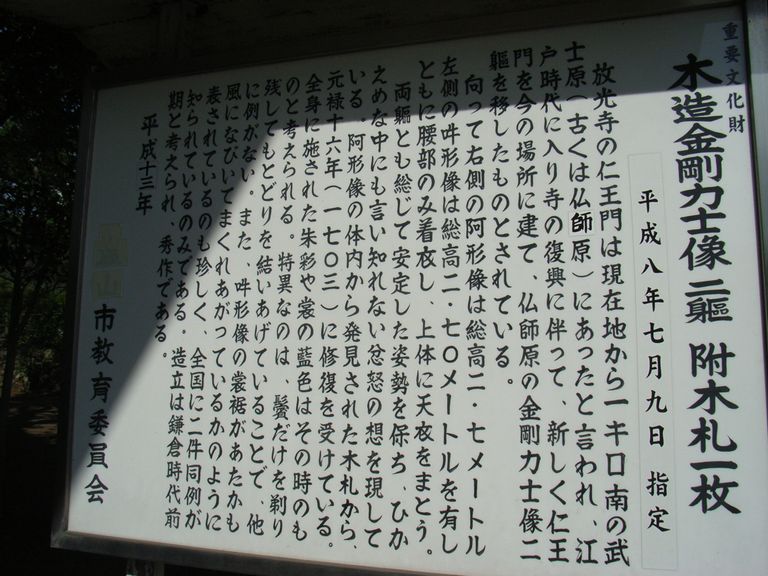 重要文化財
木造金剛力士像二軀 附木札一枚
平成八年七月九日 指定
放光寺の仁王門は現在地から一キロ南の武
士原（古くは仏師原）にあったと言われ、江
戸時代に入り寺の復興に伴って、新しく仁王
門を今の場所に建て、仏師原の金剛力士像二
軀を移したものとされている。
向って右側の阿形像は総高二・七メートル
左側の吽形像は総高二・七〇メートルを有し
ともに腰部のみ着衣し、上体に天衣をまとう。
両軀とも総じて安定した姿勢を保ち、ひか
えめな中にも言い知れない忿怒の想を現して
いる。阿形像の体内から発見された木札から、
元禄十六年（一七〇三）に修復を受けている。
全身に施された朱彩や裳の藍色はその時のも
のと考えられる。特異なのは、鬢だけを剃り
残してもとどりを結いあげていることで、他
に例がない。また、吽形像の裳裾があたかも
風になびいてまくれあがっているかのように
表されているのも珍しく、全国に二件同例が
知られているのみである。造立は鎌倉時代前
期と考えられ、秀作である。
平成十三年
山市教育委員会